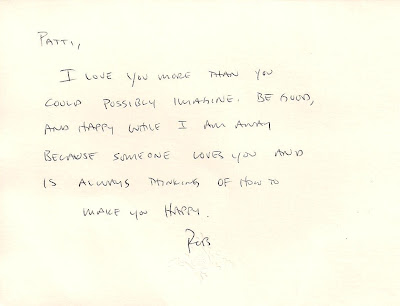 PATTI,
I LOVE YOU MORE THAN YOU
COULD POSSIBLY IMAGINE. BE GOOD,
AND HAPPY WHILE I AM AWAY
BECAUSE SOMEONE LOVES YOU AND
IS ALWAYS THINKING OF HOW TO
MAKE YOU HAPPY.
ROB